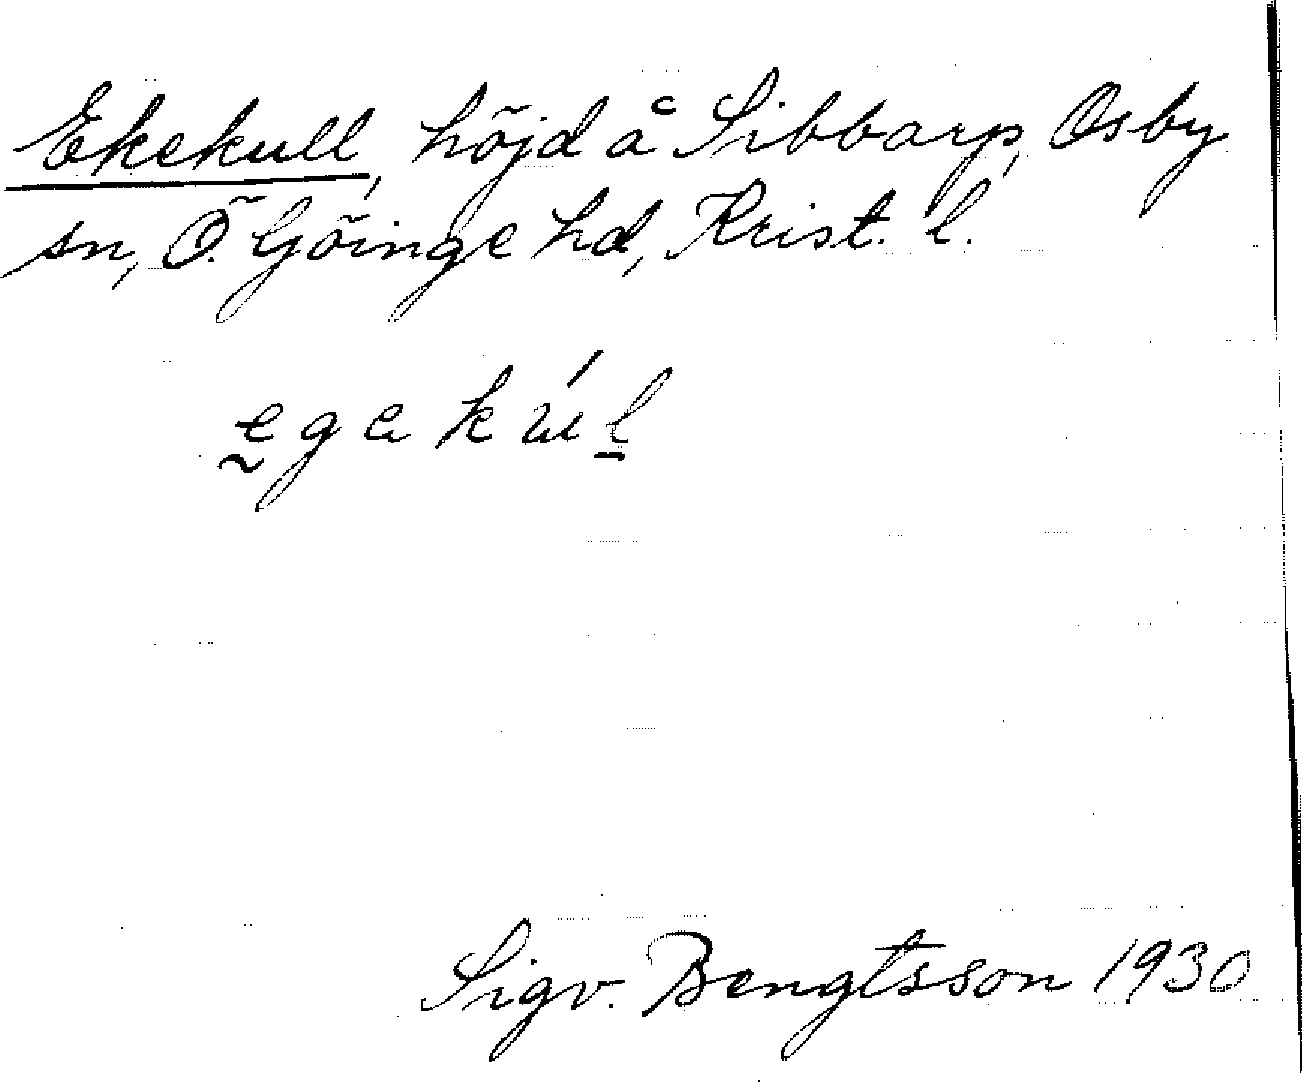 Ekekull, höjd å Sibbarp, Osby
sn, Ö. Göinge hd, Krist. l.
egekúl
Sigv. Bengtsson 1930